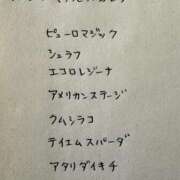 ピューロマジック
シュラフ
エコロレジーナ
アメリカンステージ
ウムシラコ
テイエムスパーダ
アタリダイキチ